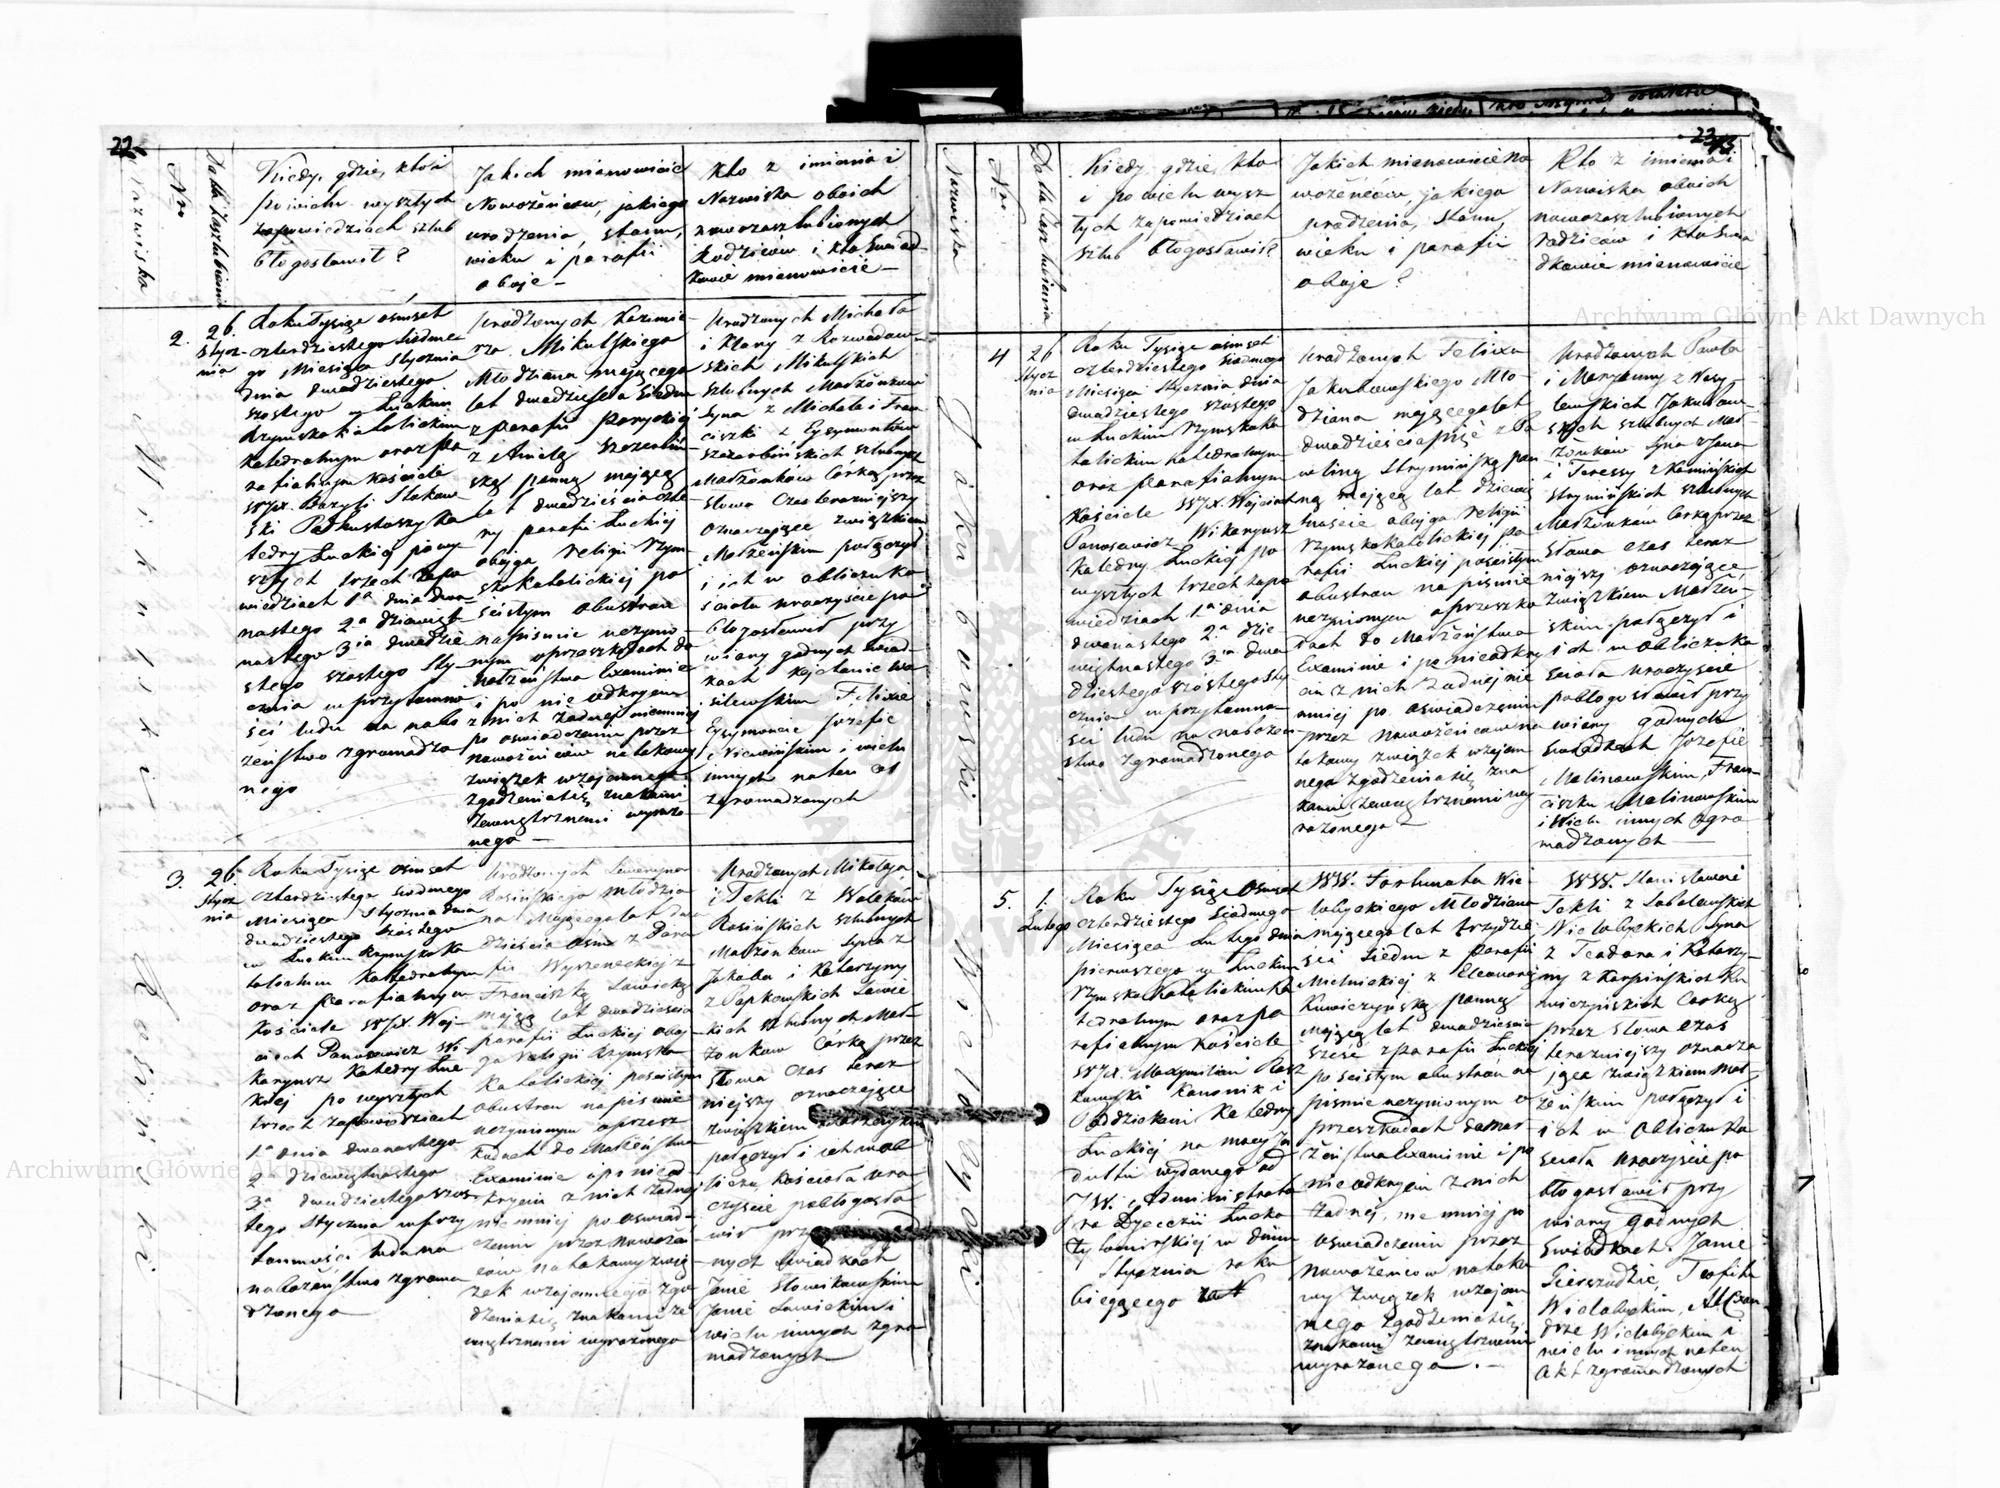 22
Nazwiska
Nro
Datta Zaszlubienia
Kiedy, gdzie, kto i
po wielu wyszłych
zapowiedziach szlub
błogosławił?
Jakich mianowicie
Nowożeńców, jakiego
urodzenia, stanu,
wieku i parafii
oboje –
Kto z imienia i
Nazwiska oboich
nowozaszlubionych
Rodziców i kto świad-
kowie mianowicie –
Mikulski
2.
26.
Stycz-
nia
Roku Tysiąc ośmset
czterdziestego siódme-
go Miesiąca Stycznia
dnia dwudziestego
szóstego w Łuckim
Rzymsko Katolickim
Katedralnym oraz pa
rafialnym Kościele
WJX. Bazyli
ski Podkustoszy Ka
tedry Łuckiej po wy
szłych trzech zapo
wiedziach 1ª dnia dwu
nastego 2ª dziewięt
nastego 3ia dwudzie
stego szóstego Sty-
cznia w przytomno
ści ludu na nabo
żeństwo zgromadzo
nego
Urodzonych Kazimie-
rza Mikulskiego
Młodziana mającego
lat dwadzieścia siedm
z parafii
z Anielą Szczerbiń-
ską panną mającą
lat dwadzieścia czte
ry parafii Łuckiej
obojga religii Rzym-
skokatolickiej po
ścisłym obustron
na piśmie uczynio-
nym o przeszkodach do
małżeństwa Examinie
i po nie odkryciu
z nich żadnej niemniej
po oświadczeniu przez
nowożeńców na takowy
związek wzajemnego
zgodzenia się znakami
zewnętrznemi wyrażo-
nego –
Urodzonych Michała
i Klary z Rozwadow-
skich Mikulskich
szlubnych Małżonków
Syna z Michała i Fran-
ciszki z Gzymontów
Szczerbińskich szlubnych
Małżonków Córką przez
słowa Czas teraźniejszy
oznaczające związkiem
Małżeńskim połączył
i ich w obliczu Ko
ścioła uroczyście po
błogosławił przy
wiary godnych świad-
kach Kajetanie Wa
silewskim Felixie
Gzymoncie Józefie
i wielu
innych na ten akt
zgromadzonych
Rosiński
3.
26.
Stycz
nia
Roku Tysiąc ośmset
czterdziestego siódmego
Miesiąca Stycznia dnia
dwudziestego szóstego
w Łuckim Rzymsko Ka
tolickim Katedralnym
oraz parafialnym
Kościele WJX. Woj-
ciech Panasewicz Wi-
karyusz Katedry Łuc
kiej po wyszłych
trzech zapowiedziach
1ª dnia dwunastego
2ª dziewiętnastego
3ª dwudziestego szós
tego Stycznia w przy
tomności ludu na
nabożeństwo zgroma
dzonego
Urodzonych Seweryna
Rosińskiego młodzia
na mającego lat dwa
dzieścia ośm z Para
fii Wyszeneckiej z
Franciszką Sawicką
mającą lat dwadzieścia
parafii Łuckiej oboj
ga religii Rzymsko
Katolickiej po ścisłym
obustron na piśmie
uczynionym o przesz
kodach do Małżeństwa
Examinie i po nieod-
kryciu z nich żadnej
niemniej po oświad-
czeniu przez nowoże
ńców na takowy zwią
zek wzajemnego zgo
dzenia się znakami ze
wnętrznemi wyrażonego
Urodzonych Mikołaja
i Tekli z Wolskich
Rosińskich szlubnych
Małżonków Syna z
Jakóba i Katarzyny
z Popkowskich Sawic
kich szlubnych Mał-
żonków Córką przez
słowa czas teraz
niejszy oznaczające
związkiem Małżeńskim
połączył i ich w ob
liczu Kościoła uro
czyście pobłogosła
wił przy
nych świadkach
Janie Słowikowskim
Janie Sawickim i
wielu innych zgro
madzonych
23
Nazwiska
Nro
Datta Zaszlubienia
Kiedy, gdzie, kto
i po wielu wysz
łych zapowiedziach
szlub błogosławił?
Jakich mianowicie no
wożeńców, jakiego
urodzenia, stanu,
wieku i parafii
oboje?
Kto z imienia i
Nazwiska oboich
nowozaszlubionych
rodziców i kto świa
dkowie mianowicie
Jakubowski
4
26
Stycz
nia
Roku Tysiąc ośmset
czterdziestego siódmego
Miesiąca Stycznia dnia
dwudziestego szóstego
w Łuckim Rzymsko Ka
tolickim Katedralnym
oraz Parafialnym
Kościele WJX. Wojciech
Panasewicz Wikaryusz
Katedry Łuckiej po
wyszłych trzech zapo
wiedziach 1ª dnia
dwunastego 2ª dzie
więtnastego 3ia dwu
dziestego szóstego Sty
cznia w przytomno-
ści ludu na nabożeń
stwo zgromadzonego
Urodzonych Felixa
Jakubowskiego Mło-
dziana mającego lat
dwadzieścia pięć z Pa
weliną Strymińską pan
ną mającą lat dziewięt
naście obojga religii
Rzymskokatolickiej pa
rafii Łuckiej po ścisłym
obustron na piśmie
uczynionym o przeszko
dach do Małżeństwa
Examinie i po nieodkry
ciu z nich żadnej nie
mniej po oświadczeniu
przez nowożeńców na
takowy związek wzajem
nego zgodzenia się zna
kami zewnętrznemi wy
rażonego –
Urodzonych Pawła
i Maryanny z Wasy-
lewskich Jakubow-
skich szlubnych Mał-
żonków Syna z Jana
i Teressy z Kamińskich
Strymińskich szlubnych
Małżonków Córką przez
słowa czas teraz
niejszy oznaczające
związkiem Małżeń-
skim połączył i
ich w obliczu Ko
ścioła uroczyście
pobłogosławił przy
wiary godnych
świadkach Józefie
Malinowskim, Fran-
ciszku Malinowskim
i wielu innych zgro
madzonych –
Wielobycki
5.
1.
Lutego
Roku Tysiąc Ośmset
czterdziestego Siódmego
Miesiąca Lutego dnia
pierwszego w Łuckim
Rzymsko Katolickim Ka
tedralnym oraz pa
rafialnym Kościele
WJX. Maxymilian Rasz
kowski Kanonik i
Poddziekani Katedry
Łuckiej na mocy In
dultu wydanego od
JW. Administrato
ra Dyecezii Łucko
Żytomirskiej w dniu
Stycznia roku
bieżącego
WW. Fortunata Wie
lobyckiego Młodziana
mającego lat trzydzie
ści siedm z parafii
Mielnickiej z Eleonorą
Kuniczyńską panną
mającą lat dwadzieścia
sześć z Parafii Łuckiej
po ścisłym obustron na
piśmie uczynionym o
przeszkodach do mał-
żeństwa Examinie i po
nieodkryciu z nich
żadnej, nie mniej po
oświadczeniu przez
nowożeńców na tako
wy związek wzajem
nego zgodzenia się,
znakami zewnętrznemi
wyrażonego. –
WW. Stanisława i
Tekli z Sobolewskich
Wielobyckich Syna
z Teodora i Katarzy-
ny z Karpińskich Ku
niczyńskich Córką
przez słowa czas
teraźniejszy oznacza
jące związkiem mał-
żeńskim połączył i
ich w obliczu Ko
ścioła uroczyście po
błogosławił przy
wiary godnych
świadkach. Janie
Gierszodzie, Teofilu
Wielobyckim, Alexan-
drze Wielobyckim i
wielu innych na ten
akt zgromadzonych
Archiwum Główne Akt Dawnych
Archiwum Główne Akt Dawnych